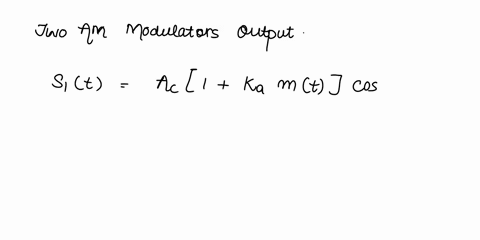 Two AM Modulators Output.
S1(t) = Ac [1 + Ka m(t)] cos